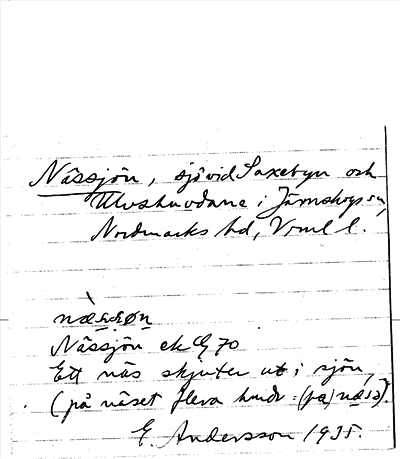 Nässjön, sjö vid Saxebyn och
i Järnskogs sn,
Nordmarks hd, Vrml l.
Nässjön ek G 70
Ett näs skjuter ut i sjön,
(på näset flera hmdr: (pa) näsə).
E. Andersson 1935.